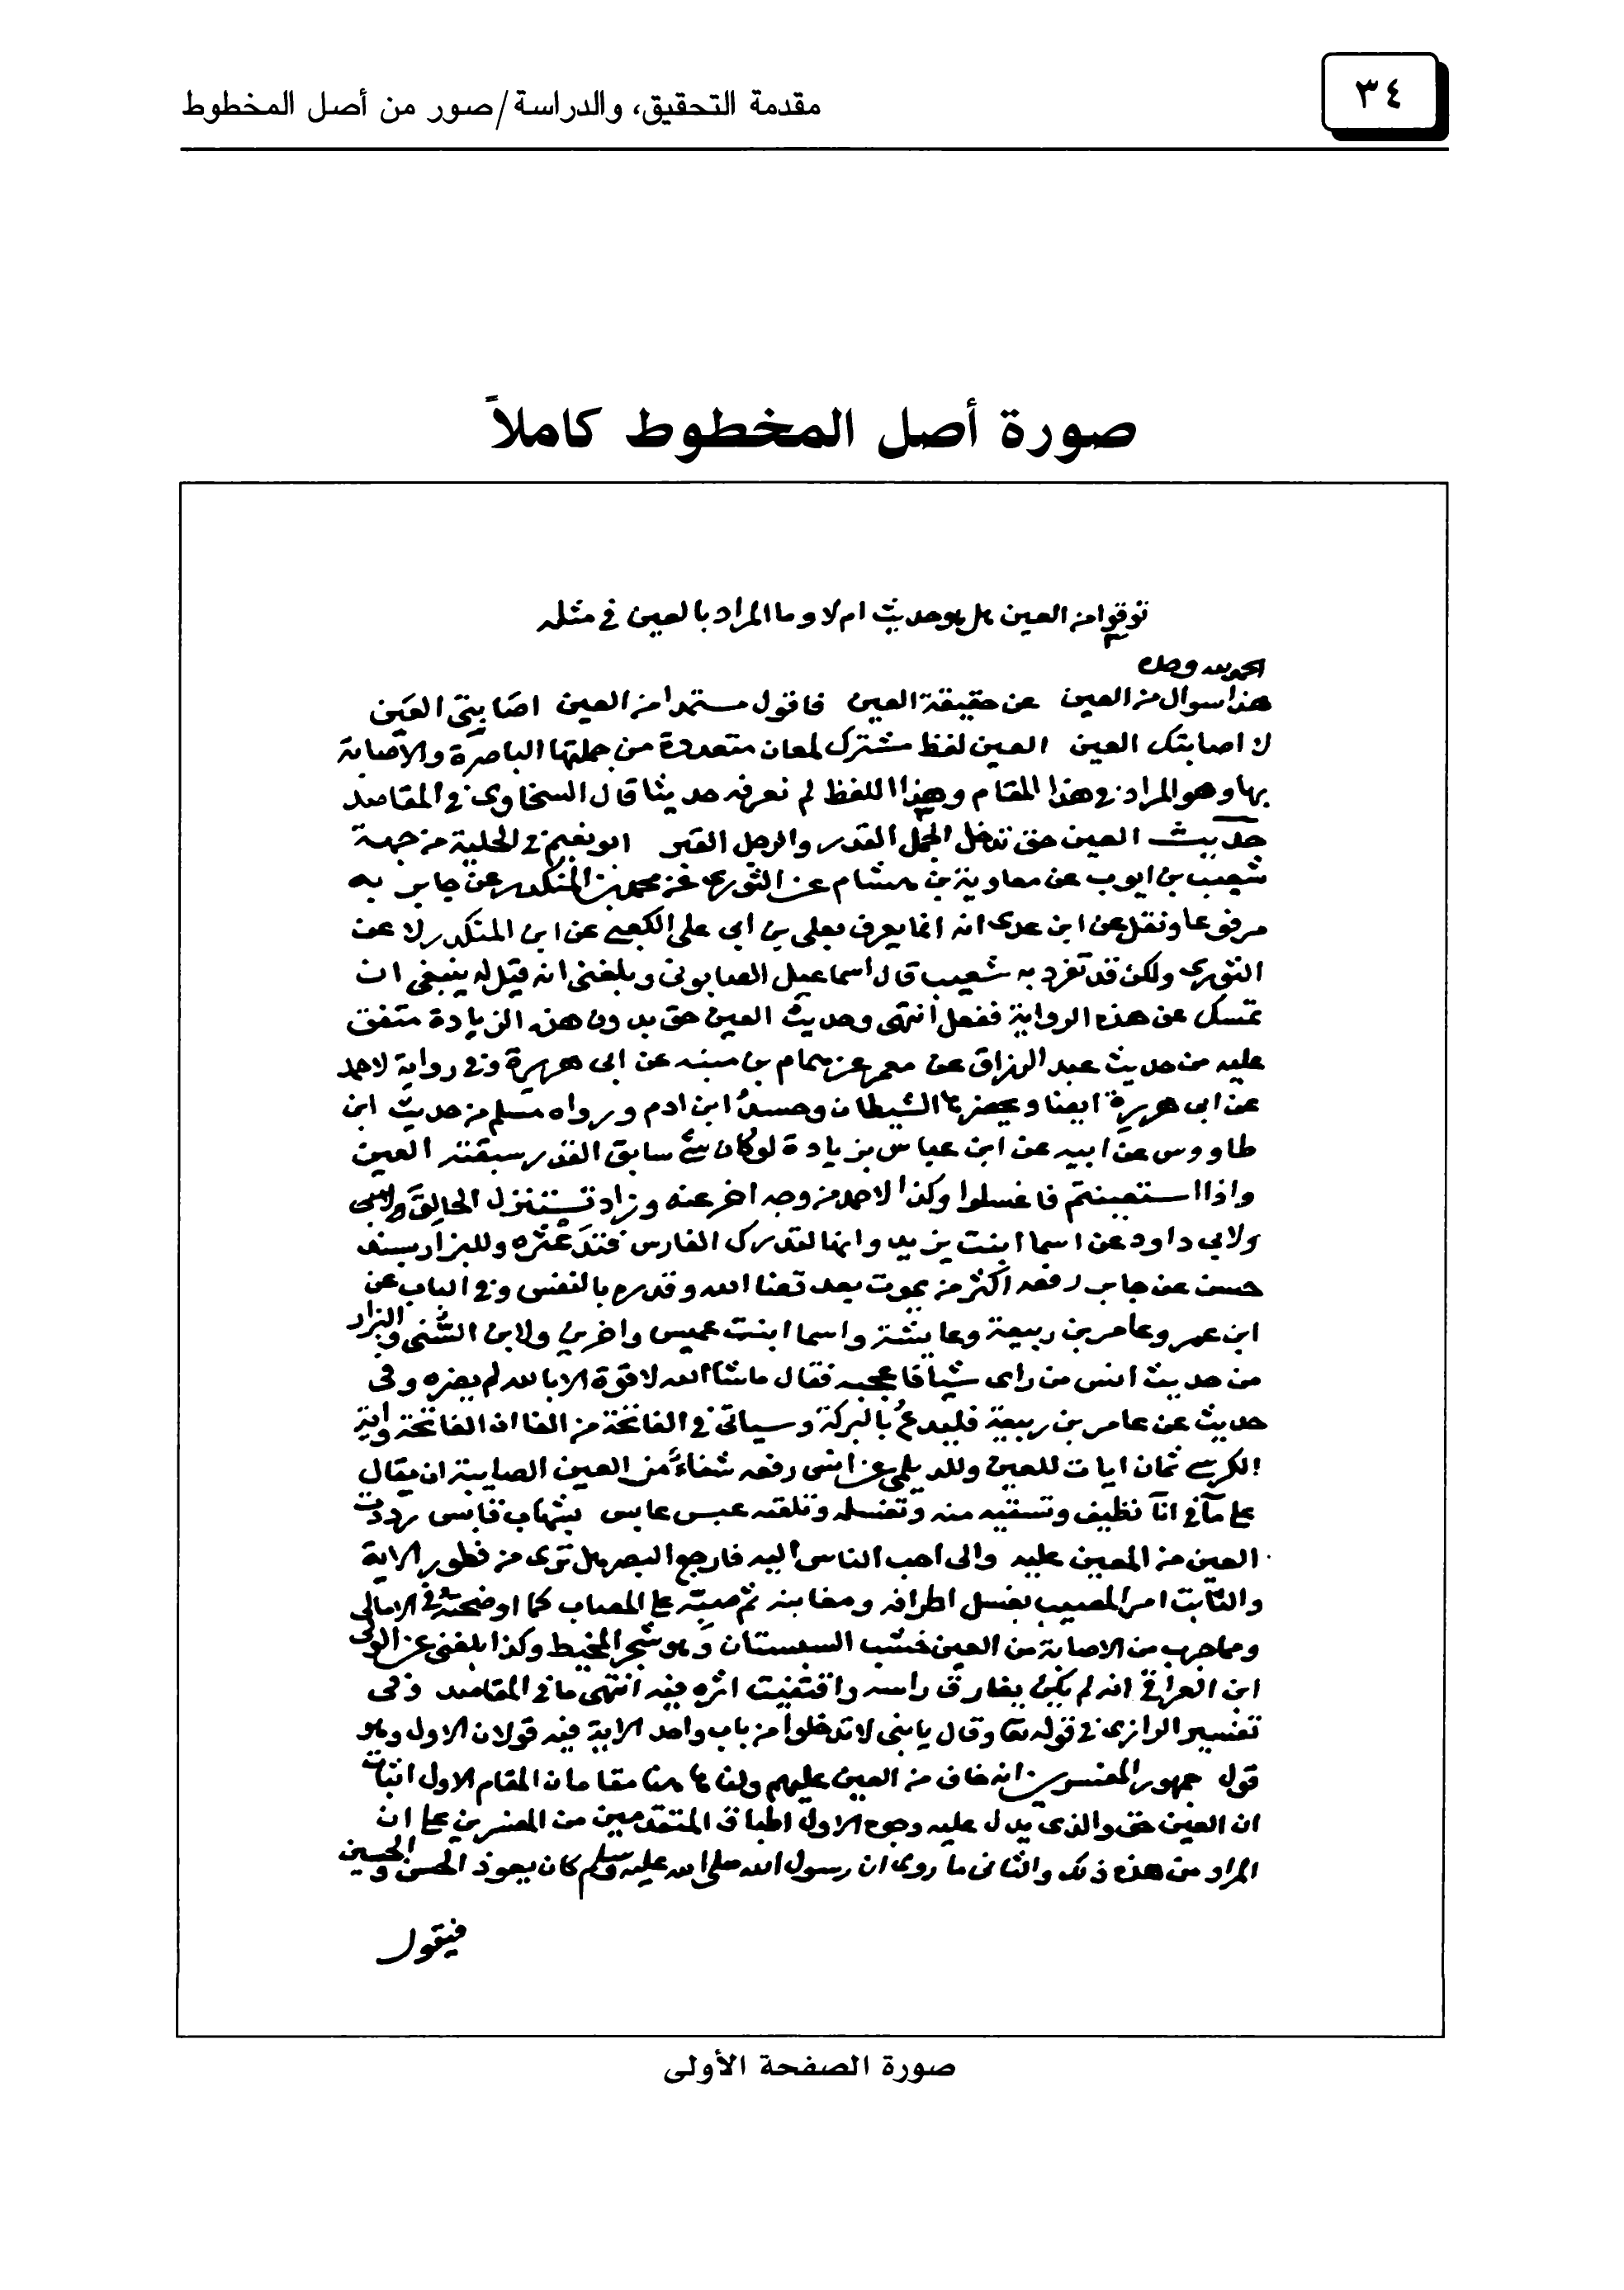 ٣٤
مقدمة التحقيق، والدراسة/صور من أصل المخطوط
صورة أصل المخطوط كاملاً
توقوا من العين هل هو حديث ام لا وما المراد بالعين في مثله
الحمد لله وحده
هذا سوال من العين عن حقيقة العين فاقول مستمدا من العين اصابتي العين
لا اصابتك العين العين لفظ مشترك لمعان متعددة من جملتها الباصرة والاصابة
بها وهو المراد في هذا المقام وهذا اللفظ لم نعرفه حديثا قال السخاوي في المقاصد
حديث العين حق تدخل الجمل القدر والرجل القبر ابو نعيم في الحلية من جهة
شعيب بن ايوب عن معاوية بن هشام عن الثوري عن محمد بن المنكدر عن جابر به
مرفوعا ونقل عن ابن عدي انه انما يعرف بعلي بن ابي علي الكعبي عن ابن المنكدر لا عن
الثوري ولكن قد تفرد به شعيب قال اسماعيل الصابوني وبلغني انه قيل له ينبغي ان
تمسك عن هذه الرواية ففعل انتهى وحديث العين حق بدون هذه الزيادة متفق
عليه من حديث عبد الرزاق عن معمر عن همام بن منبه عن ابي هريرة وفي رواية لاحمد
عن ابي هريرة ايضا ويحضرها الشيطان وحسد ابن ادم ورواه مسلم من حديث ابن
طاووس عن ابيه عن ابن عباس بزيادة لو كان شي سابق القدر سبقته العين
واذا استغسلتم فاغسلوا وكذا لاحمد من وجه اخر عنه وزاد تستنزل الحالق
ولابي داود عن اسما ابنت يزيد وانها لتدرك الفارس فتدعثره وللبزار بسند
حسن عن جابر رفعه اكثر من يموت بعد قضا الله وقدره بالنفس وفي الباب عن
ابن عمر وعامر بن ربيعة وعايشة واسما ابنت عميس واخرين ولابن السني والبزار
من حديث انس من راى شيا فاعجبه فقال ما شا الله لا قوة الا بالله لم يضره وفي
حديث عن عامر بن ربيعة فليدع بالبركة وسياتي في الفاتحة من الفا ان الفاتحة واية
الكرسي ثمان ايات للعين وللديلمي عن انس رفعه شفاء من العين الصايبة ان يقال
على ما في انا نظيف وتسقيه منه وتغسله وتلقنه عبس عابس بشهاب قابس رددت
العين من المعين عليه والى احب الناس اليه فارجع البصر هل ترى من فطور الاية
والثابت امر المصيب بغسل اطرافه ومغابنه ثم صبه على المصاب كما اوضحته في الامالي
ومما جرب من الاصابة من العين خشب السبستان وهو شجر المخيط وكذا بلغني عن الولي
ابن العراقي انه لم يكن يفارق راسه واقتفيت اثره فيه انتهى ما في المقاصد وفي
تفسير الرازي في قوله تعا وقال يا بني لا تدخلوا من باب واحد الاية فيه قولان الاول وهو
قول جمهور المفسرين انه خاف من العين عليهم ولنا ها هنا مقامان المقام الاول اثبات
ان العين حق والذي يدل عليه وجوه الاول اطباق المتقدمين من المفسرين على ان
المراد من هذه ذلك والثاني ما روي ان رسول الله صلى الله عليه وسلم كان يعوذ الحسن والحسين
فيقول
صورة الصفحة الأولى